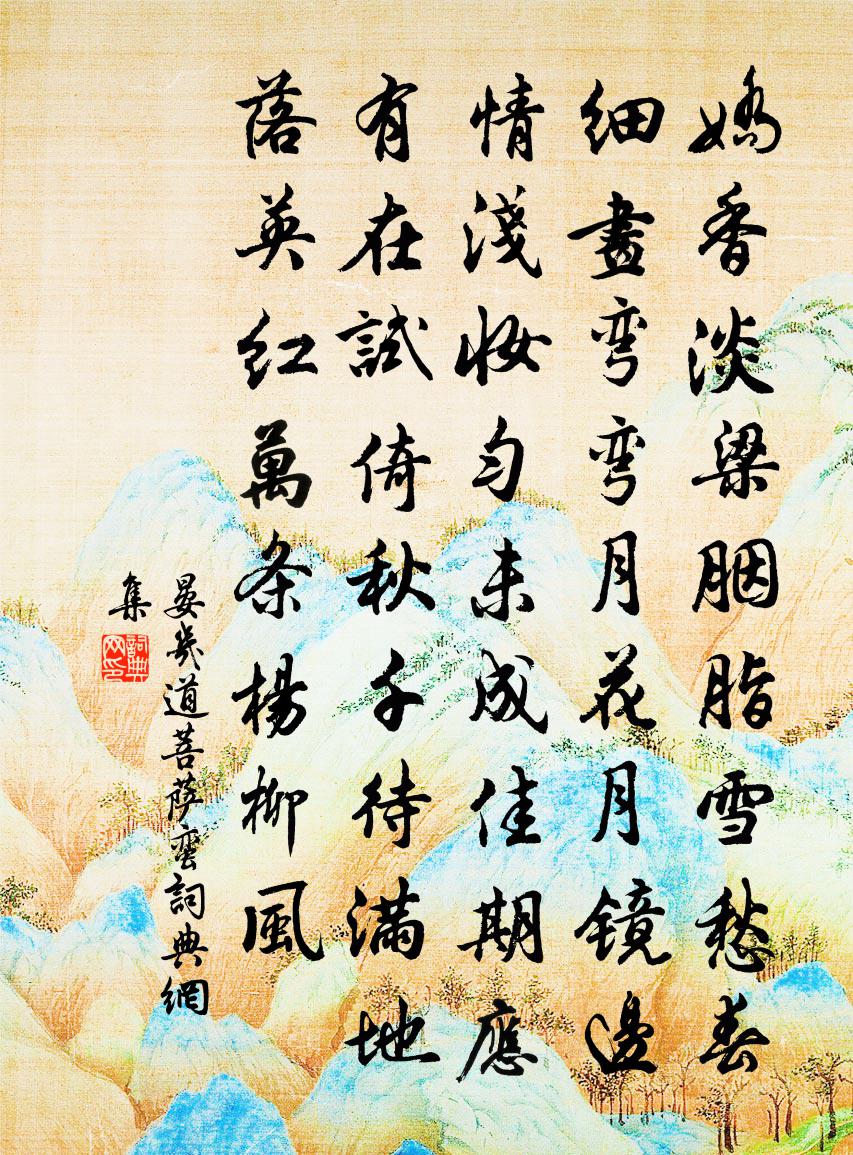 嬌香淡染胭脂雪愁春
細畫弯弯月花月鏡邊
情淺妝勻未成佳期應
有在試倚秋千待滿地
落英紅萬条楊柳風
晏幾道菩薩蛮詞典網
集
詞典網印